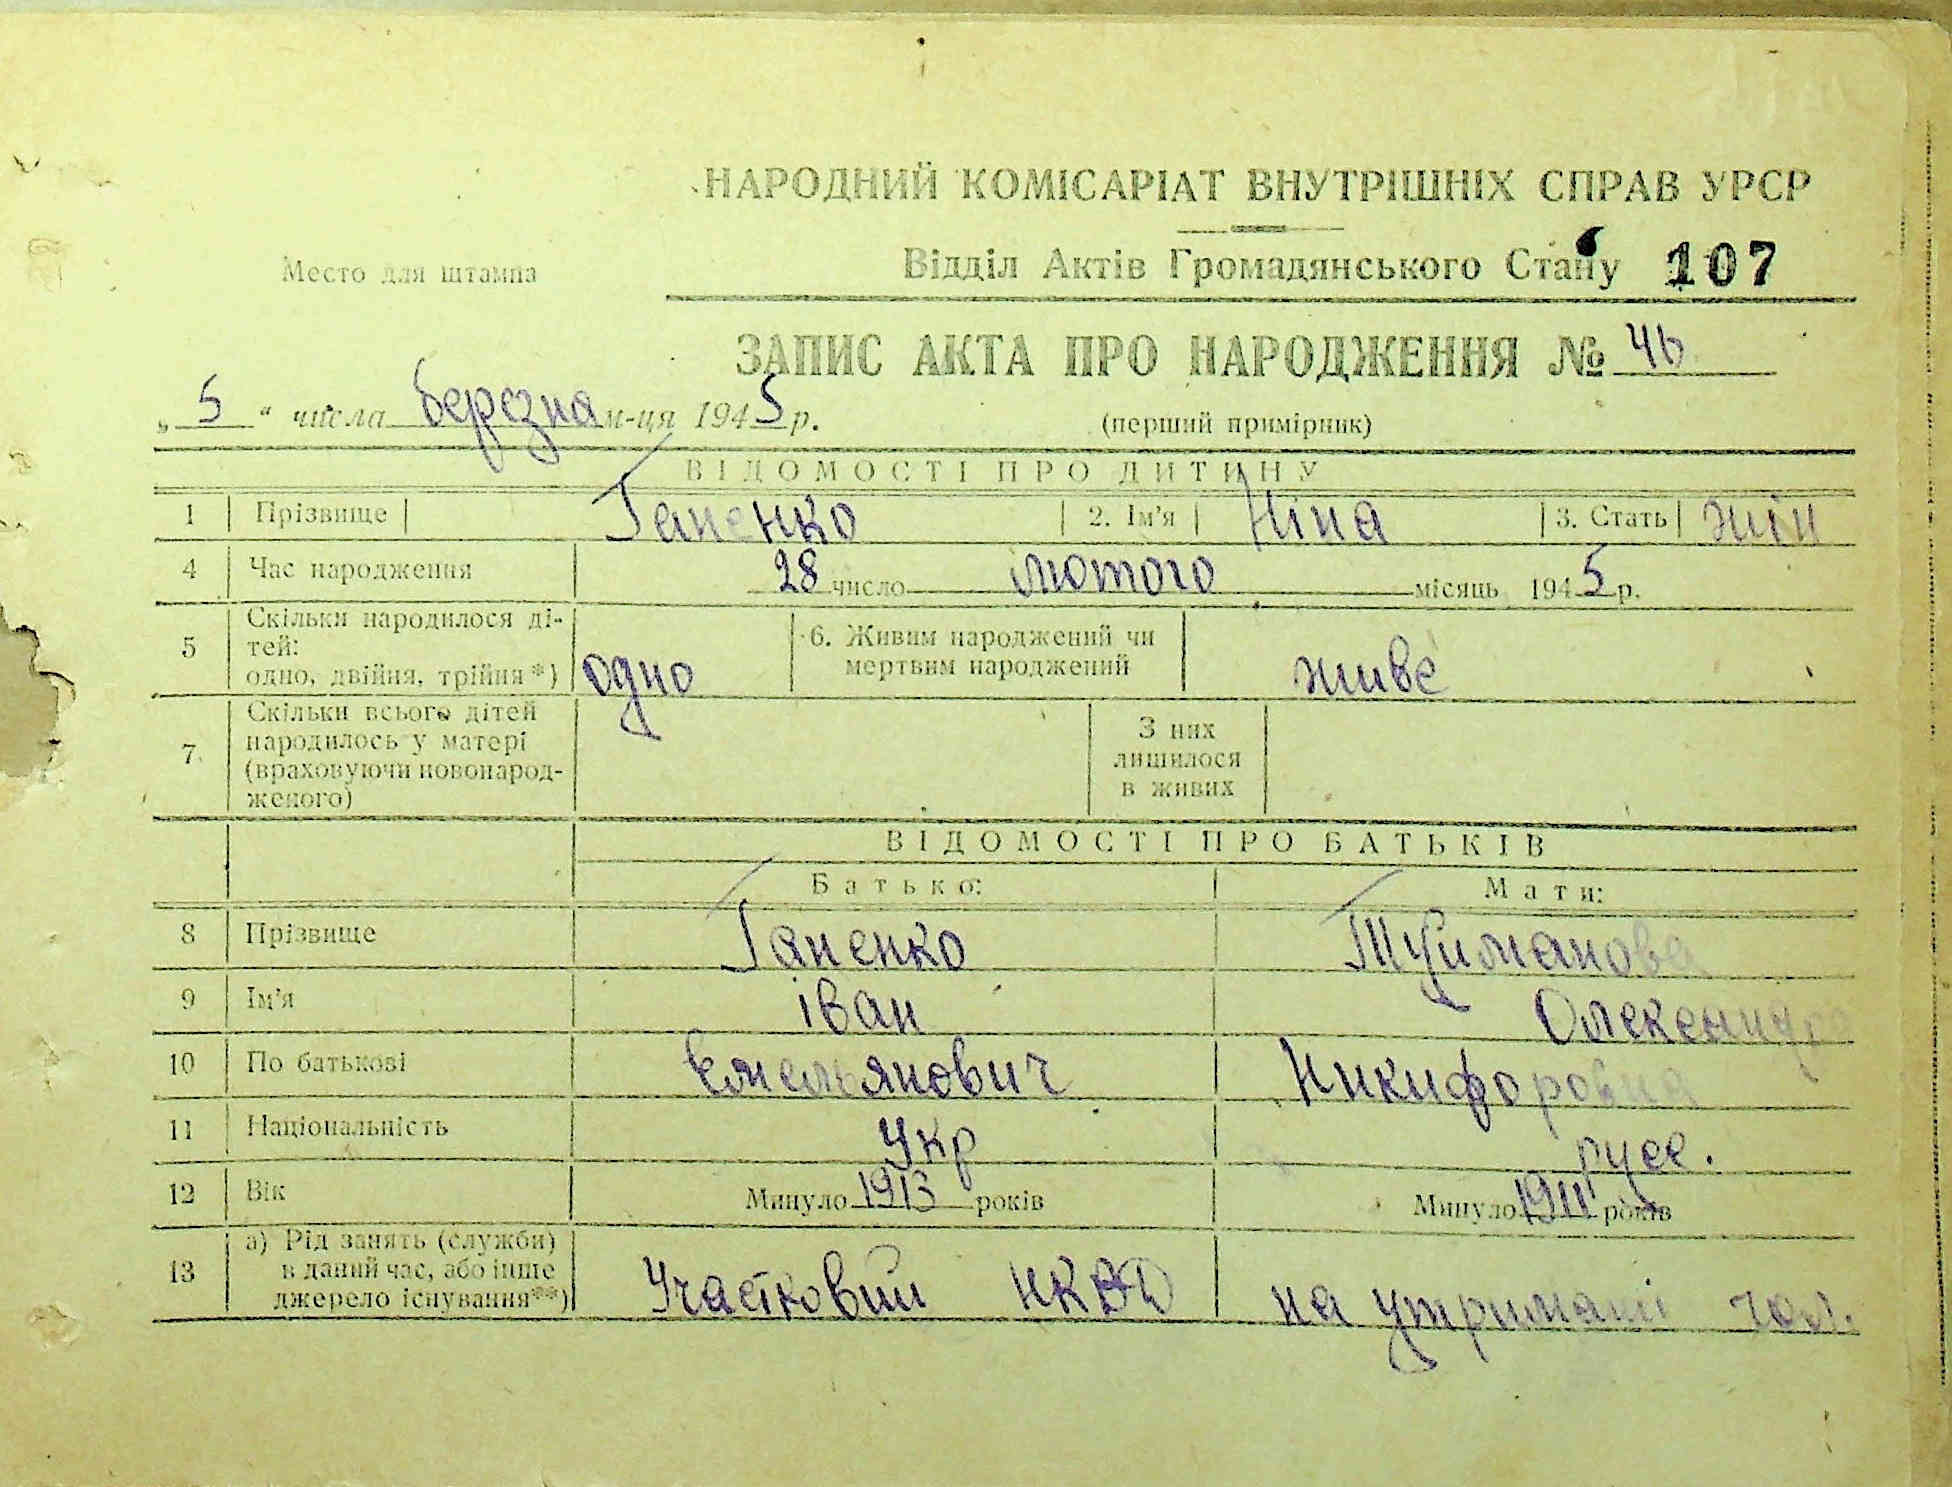 НАРОДНИЙ КОМІСАРІАТ ВНУТРІШНІХ СПРАВ УРСР
Место для штампа
Відділ Актів Громадянського Стану 107
ЗАПИС АКТА ПРО НАРОДЖЕННЯ № 46
„ 5 “ числа березна м-ця 1945 р.
(перший примірник)
ВІДОМОСТІ ПРО ДИТИНУ
1 Прізвище Ганенко 2. Ім'я Ніна 3. Стать жін
4 Час народження 28 число лютого місяць 1945 р.
5 Скільки народилося ді-
тей:
одно, двійня, трійня*) одно 6. Живим народжений чи
мертвим народжений живе
7 Скільки всього дітей
народилось у матері
(враховуючи новонарод-
женого)
З них
лишилося
в живих
ВІДОМОСТІ ПРО БАТЬКІВ
Батько: Мати:
8 Прізвище Ганенко Туйманова
9 Ім'я іван Олександра
10 По батькові Емельянович Никифоровна
11 Національність Укр русс.
12 Вік Минуло 1913 років Минуло 1911 років
13 а) Рід занять (служби)
в даний час, або інше
джерело існування**) Участковий НКВД на утримані чол.